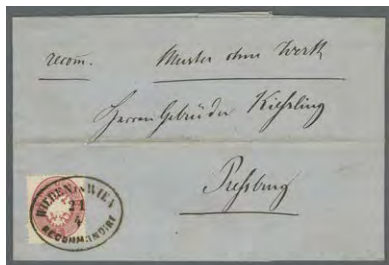 recom. Muster ohne Werth
Herren Gebrüder Kiessling
Pressburg
WIEDEN IN WIEN
21
4
RECOMMANDIRT